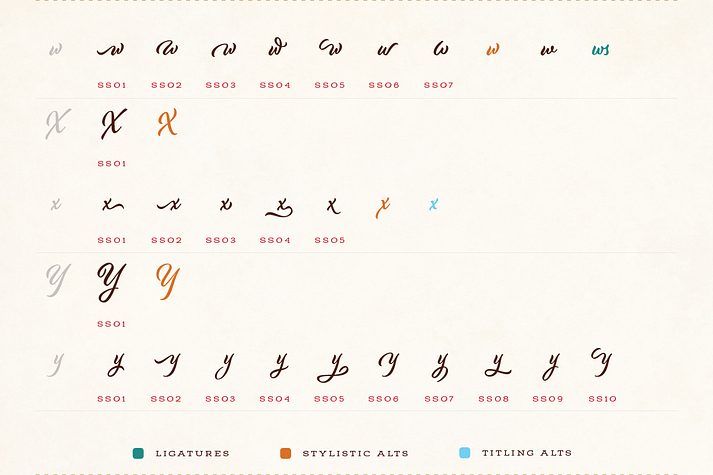 w w w w w w w w w w ws
SS01 SS02 SS03 SS04 SS05 SS06 SS07
X X X
SS01
x x x x x x x x
SS01 SS02 SS03 SS04 SS05
Y Y Y
SS01
y y y y y y y y y y y
SS01 SS02 SS03 SS04 SS05 SS06 SS07 SS08 SS09 SS10
LIGATURES STYLISTIC ALTS TITLING ALTS